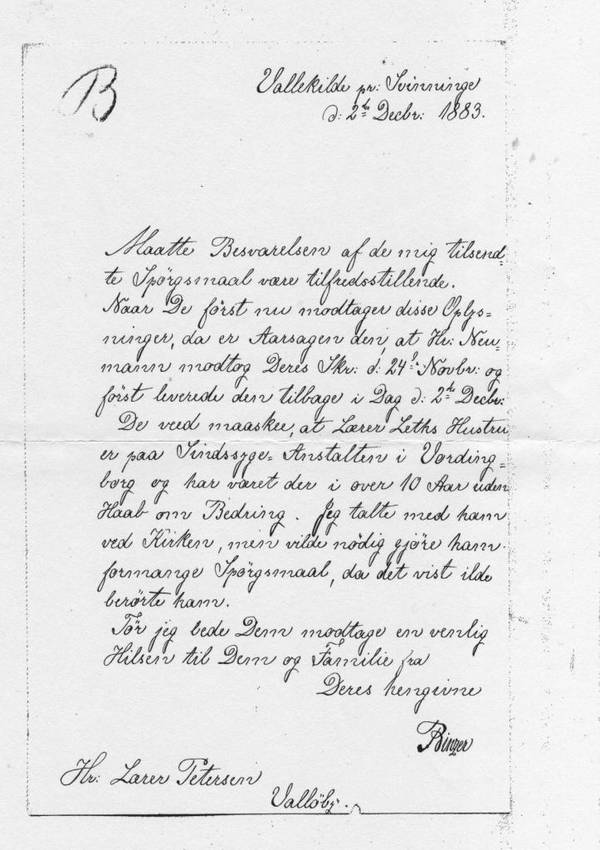 B
Vallekilde pr: Svinninge
d: 2den Decbr: 1883.
Maatte Besvarelsen af de mig tilsend=
te Spörgsmaal være tilfredsstillende.
Naar De först nu modtager disse Oplys=
ninger, da er Aarsagen den, at Hr: Neu=
mann modtog Deres Skr: d: 24de Novbr: og
först leverede den tilbage i Dag d: 2den Decbr:
De veed maaskee, at Lærer Leths Hustru
er paa Sindssyge=Anstalten i Vording=
borg og har været der i over 10 Aar uden
Haab om Bedring. Jeg talte med ham
ved Kirken, men vilde nödig gjöre ham
formange Spörgsmaal, da det vist ilde
berörte ham.
Tör jeg bede Dem modtage en venlig
Hilsen til Dem og Familie fra
Deres hengivne
Binzer
Hr: Lærer Petersen
Vallöby.